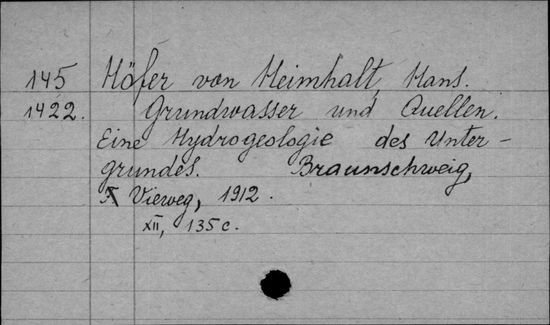 145 Höfer von Heimhalt, Hans.
1422. Grundwasser und Quellen.
Eine Hydrogeologie des Unter-
grundes. Braunschweig,
Vieweg, 1912.
XII, 135 c.